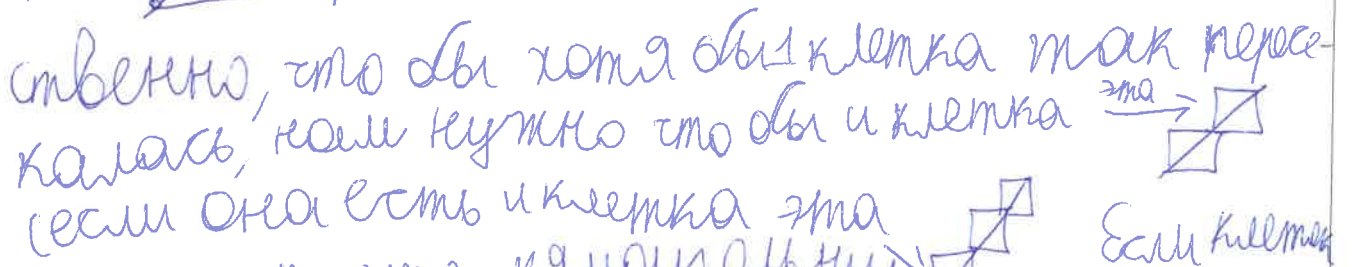 ственно, что бы хотя бы 1 клетка так пересе-
калась, нам нужно что бы и клетка эта
(если она есть и клетка эта Если клеток